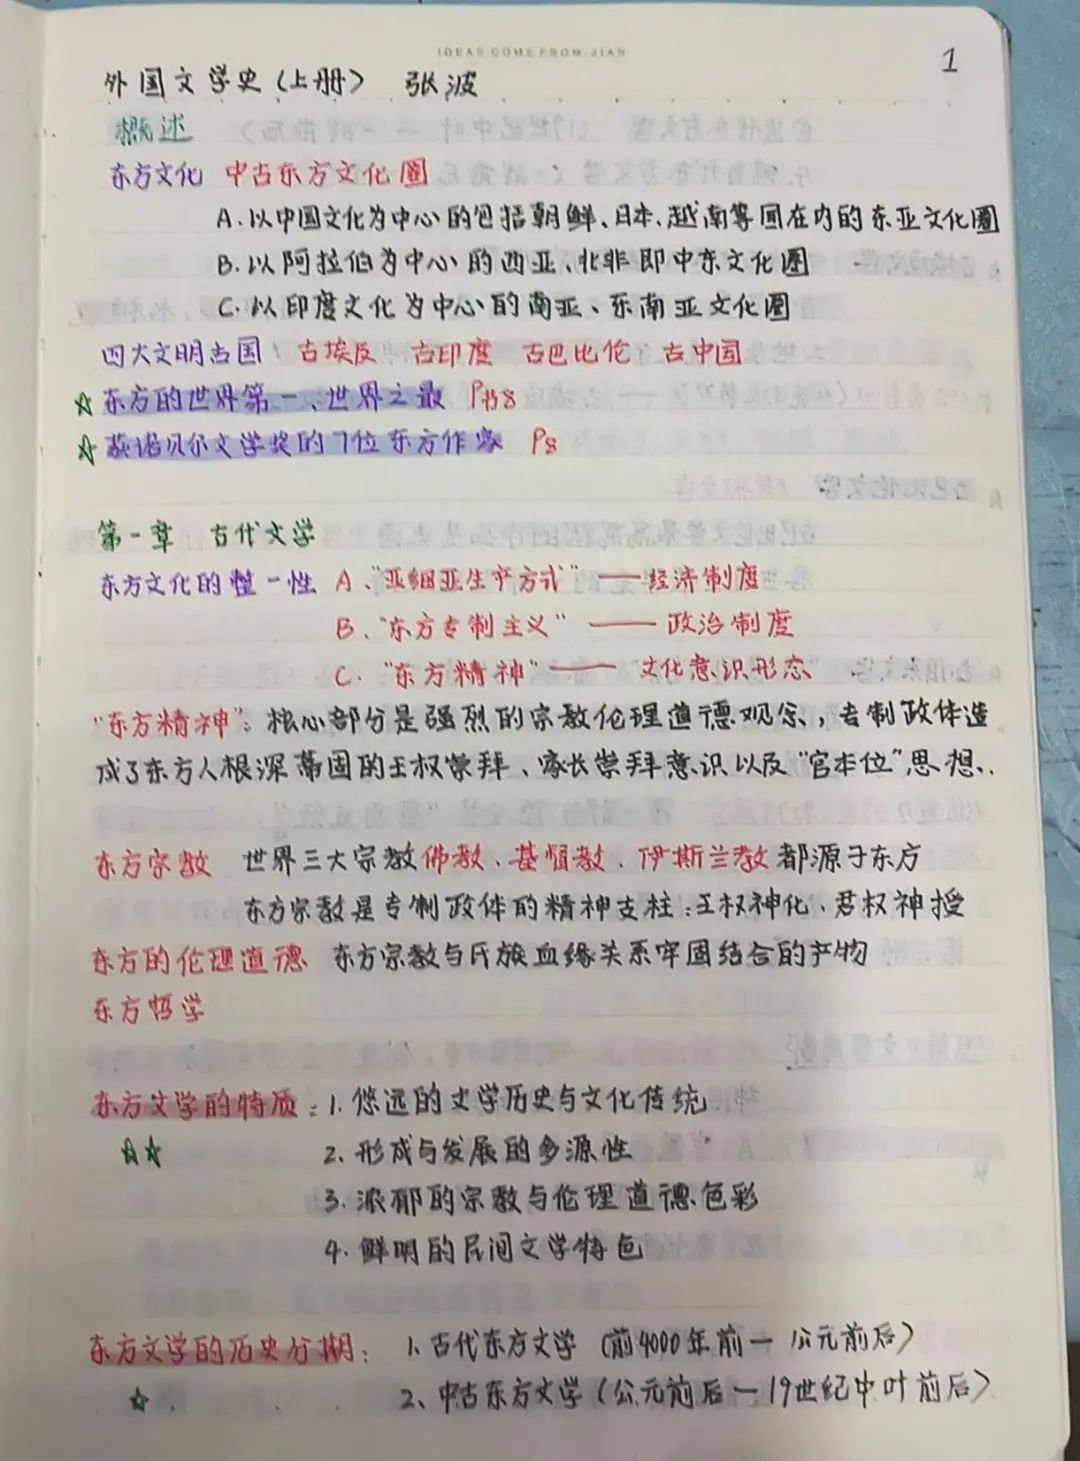 IDEAS COME FROM JIAN
1
外国文学史(上册) 张波
概述
东方文化 中古东方文化圈
A.以中国文化为中心的包括朝鲜、日本、越南等国在内的东亚文化圈
B.以阿拉伯为中心的西亚、北非即中东文化圈
C.以印度文化为中心的南亚、东南亚文化圈
四大文明古国 古埃及 古印度 古巴比伦 古中国
☆东方的世界第一、世界之最
☆获诺贝尔文学奖的7位东方作家 P8
第一章 古代文学
东方文化的整一性 A.“亚细亚生产方式”——经济制度
B.“东方专制主义”——政治制度
C.“东方精神”——文化意识形态
“东方精神”:核心部分是强烈的宗教伦理道德观念,专制政体造
成了东方人根深蒂固的王权崇拜、家长崇拜意识以及“官本位”思想.
东方宗教 世界三大宗教佛教、基督教、伊斯兰教都源于东方
东方宗教是专制政体的精神支柱:王权神化、君权神授
东方的伦理道德 东方宗教与氏族血缘关系牢固结合的产物
东方哲学
东方文学的特质:1.悠远的文学历史与文化传统
☆☆ 2、形成与发展的多源性
3.浓郁的宗教与伦理道德色彩
4.鲜明的民间文学特色
东方文学的历史分期: 1.古代东方文学(前4000年前—公元前后)
☆ 2、中古东方文学(公元前后—19世纪中叶前后)